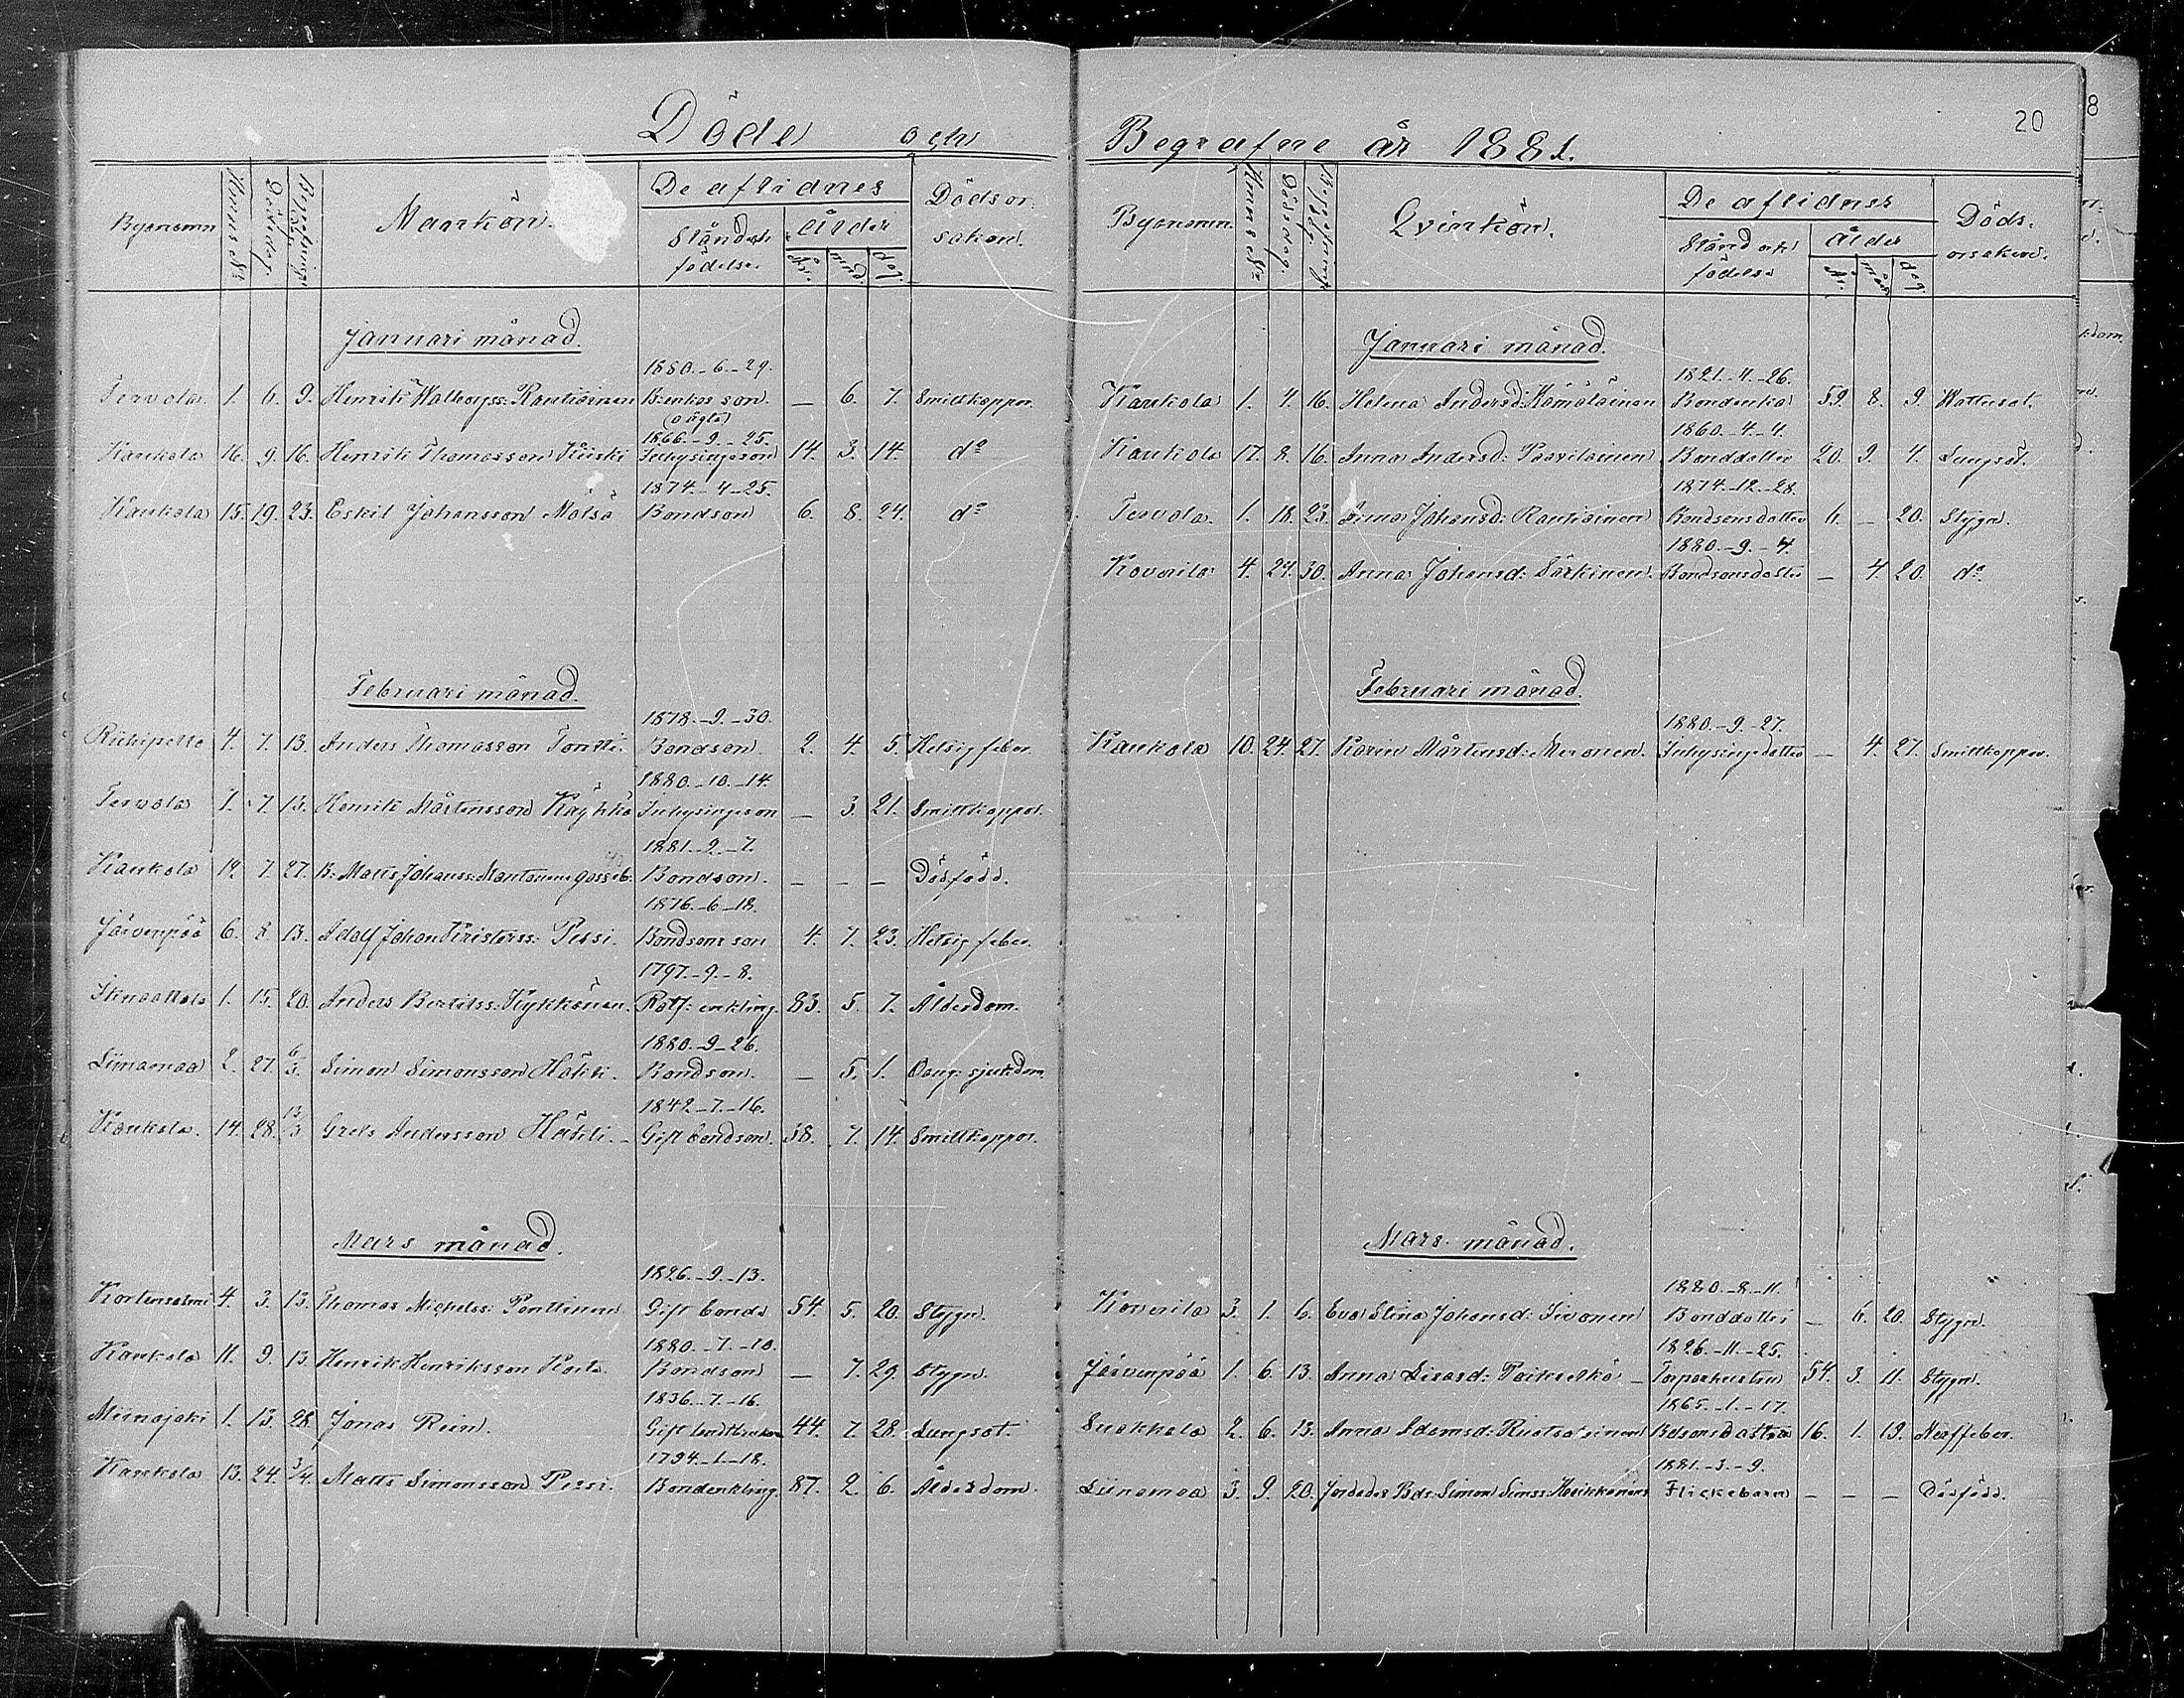 Döde och
Begrafne år 1881.
20
Bynamn
Mankön.
De aflidnes
Stånd och födelse.
Ålder
år.
mnd.
dag.
Dödsor-
saken.
Januari månad.
1880.-6.-29.
Tervola. 1. 6. 9. Henrik Walborgss: Rautiainen Benkas son. — 6. 7. Smittkoppor.
(oägta)
1866.-9.-25.
Kaukola 16. 9. 16. Henrik Thomasson Kiiski Inhysingeson 14. 3. 14. do
1874.-4-25.
Kaukola 15. 19. 23. Eskil Johansson Mälsä Bondson 6. 8. 24. do
Februari månad.
1878.-9.-30.
Riihipelto 4. 7. 13. Anders Thomasson Tontti. Bondson. 2. 4. 5. Hetsig feber.
1880.-10.-14.
Tervola 7. 7. 13. Henrik Mårtensson Käyhkö Inhysingeson — 3. 21. Smittkoppor.
1881.-2.-7.
Kaukola 19. 7. 27. B: Matts Johanss: Mantonens gosseb: Bondson. — — — Dödfödd.
1876.-6-18.
Järvenpää 6. 8. 13. Adolf Johan Kristerss: Pessi. Bondsons son 4. 7. 23. Hetsig feber.
1797.-9.-8.
1. 15. 20. Anders Bertilss: Kykkänen. Rotf: enkling. 83. 5. 7. Ålderdom.
1880.-9-26.
Liinamaa 2. 27. 6/3. Simon Simonsson Häkli. Bondson. — 5. 1. sjukdom.
1842-7.-16.
Kaukola. 14. 28. 13/3 Grels Andersson Häkli. Gift bondson. 38. 7. 14. Smittkoppor.
Mars månad.
1826.-9.-13.
Kortensalmi 4. 3. 13. Thomas Michelss: Ponttinen Gift bonde 54. 5. 20. Stygn.
1880.-7.-10.
Kaukola 11. 9. 13. Henrik Henriksson Korte. Bondson — 7. 29. Stygn.
1836.-7.-16.
1. 13. 28. Jonas Rein. Gift landtbrukare 44. 7. 28. Lungsot.
1794.-1.-18.
Kaukola 13. 24. 3/4. Matts Simonsson Pessi. Bondenkling. 87. 2. 6. Ålderdom.
Bynamn.
Qvinkön.
De aflidnes
Stånd och födelse
Ålder
år.
dag.
Döds-
orsaken.
Januari månad.
1821.-4.-26.
Kaukola 1. 4. 16. Helena Andersd: Hämäläinen Bondenka 59. 8. 9. Wattusot.
1860.-4.-4.
Kaukola 17. 8. 16. Anna Andersd: Paavilainen Bonddotter 20. 9. 4. Lungsot.
1874.-12.-28.
Tervola. 1. 18. 23. Anna Johansd: Rautiainen Bondsonsdotter 6. — 20. Stygn.
1880.-9.-4.
Koverila 4. 24. 30. Anna Johansd: Särkinen. Bondsonsdotter — 4. 20. do.
Februari månad.
1880.-9.-27.
Kaukola 10. 24. 27. Karin Mårtensd: Meronen. Inhysingedotter — 4. 27. Smittkoppor.
Mars månad.
1880.-8.-11.
Koverila 3. 1. 6. Eva Stina Johansd: Sivonen Bonddotter — 6. 20. Stygn.
1826.-11.-25.
Järvenpää 1. 6. 13. Anna Lisasd: — Torparhustru 54. 3. 11. Stygn.
1865.-1.-17.
Suokkola 2. 6. 13. Anna Adamsd: Ruotsalainen Bdsonsdotter 16. 1. 19. Nerffeber.
1881.-3.-9.
Liinamaa 3. 9. 20. Jordades Bds: Simon Simss: Heikkonens Flickebarn — — — Dödfödd.